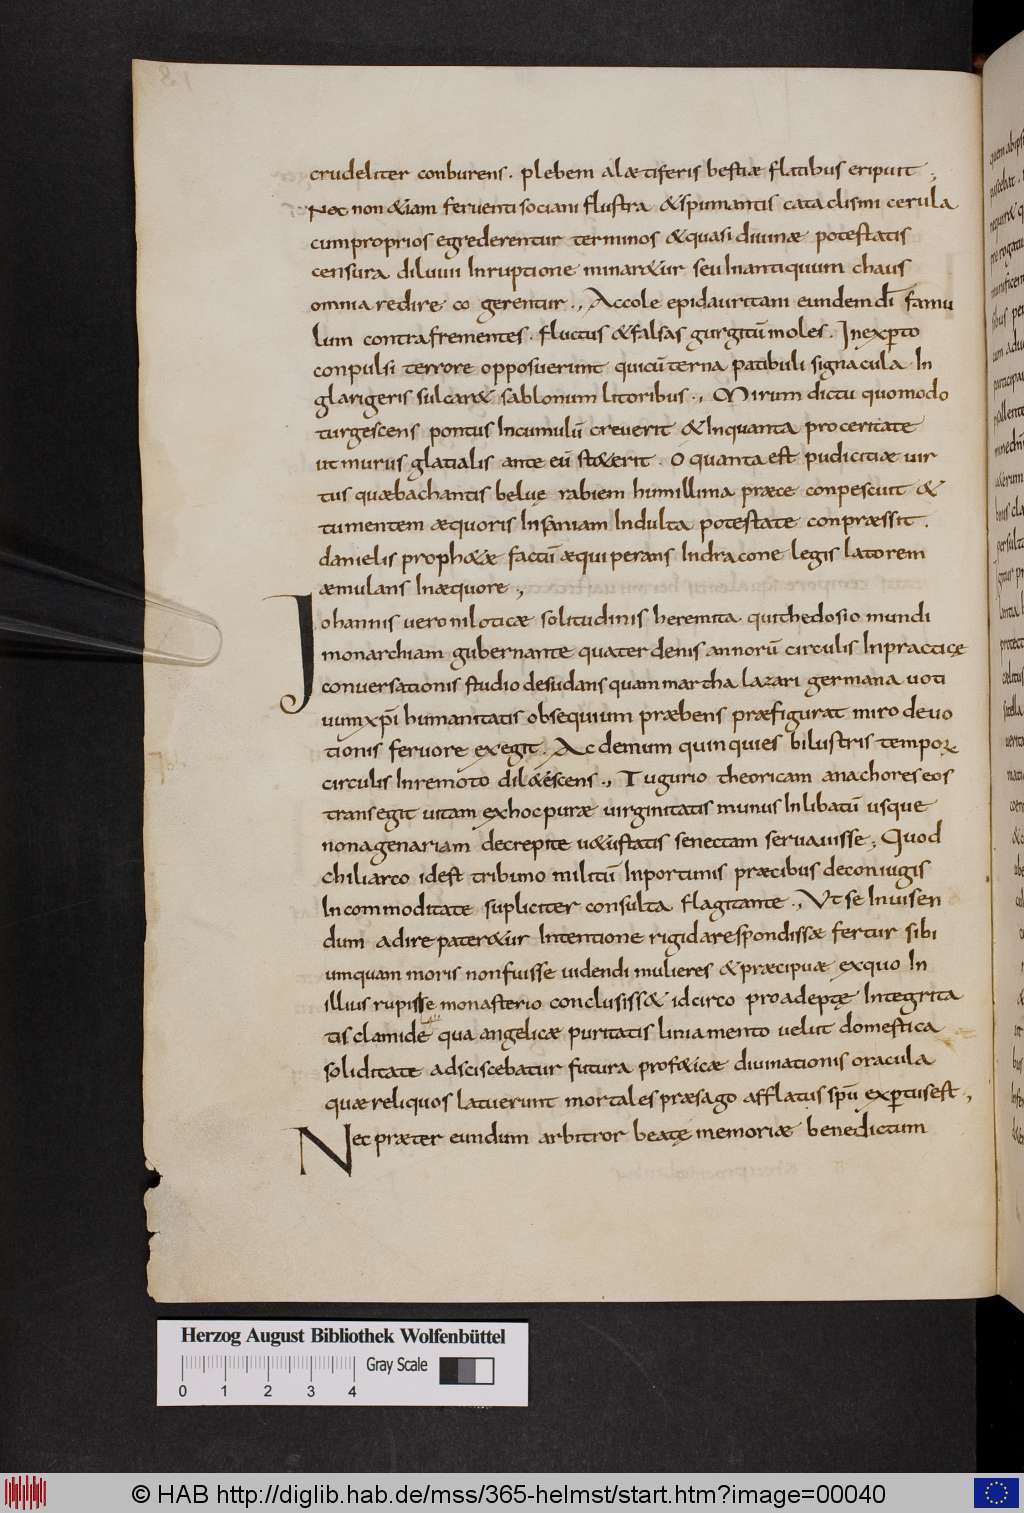 crudeliter conburens. plebem alætiferis bestiæ flatibus eripuit ;
Nec non &iam ferventi sociani flustra &spumantis cata clismi cerula
cumproprios egrederentur terminos &quasi divinæ potestatis
censura diluvii Inruptione minar&ur seu Inantiquum chaus
omnia redire co gerentur., Accole epidauritani eundem dī famu
lum contrafrementes. fluctus &falsas gurgitū moles. Inexꝑto
conpulsi terrore opposuerunt quicū terna patibuli signacula In
glarigeris sulcar& sablonum litoribus., Mirum dictu quomodo
turgescens pontus Incumulū creverit &Inquanta proceritate
ut murus glatialis ante eū st&erit. O quanta est pudicitiæ vir
tus quæbachantis beluę rabiem humillima præce conpescuit &
tumentem æquoris Insaniam Indulta potestate conpræssit.
danielis proph&æ factū æquiperans Indracone legis latorem
æmulans Inæquore .,
Iohannis vero niloticæ solitudinis heremita. quithedosio mundi
monarchiam gubernante quater denis annorū circulis Inpracticę
conversationis studio desudans quam martha lazari germana voti
vum xpī humanitatis obsequium præbens præfigurat miro devo
tionis fervore exegit. Ac demum quinquies bilustris tempoꝝ
circulis Inremoto dil&escens., Tugurio theoricam anachoreseos
transegit vitam exhocpuræ virginitatis munus Inlibatū usque
nonagenariam decrepite v&ustatis senectam servavisse; Quod
chiliarco idest tribuno militū Inportunis præcibus deconiugis
Incommoditate supliciter consulta flagitante., Ut se Invisen
dum adire pater&ur Intentione rigidarespondissæ fertur sibi
umquam moris nonfuisse videndi mulieres &præcipuæ exquo In
illius rupisse monasterio conclusiss& idcirco proadeptę Integrita
tis clamide qua angelicæ puritatis liniamento velut domestica
soliditate adsciscebatur futura prof&icæ divinationis oracula
quæreliquos latuerunt mortales præsago afflatus spū exꝑtusest .,
Nec præter eundum arbitror beatę memoriæ benedictum
Herzog August Bibliothek Wolfenbüttel
Gray Scale
0 1 2 3 4
© HAB http://diglib.hab.de/mss/365-helmst/start.htm?image=00040